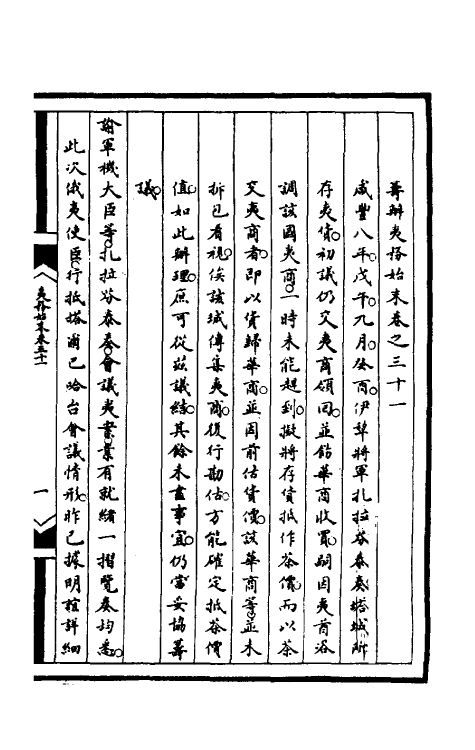 籌辦夷務始末卷之三十一
咸豐八年戊午九月癸酉伊犂將軍扎拉芬泰奏塔城所
存夷貨初議仍交夷商領回並飭華商收買嗣因夷酋咨
調該國夷商一時未能趕到擬將存貨抵作茶價而以茶
交夷商者即以貨歸華商並因前估貨價該華商等並未
拆包看視俟該城傳集夷商復行勘估方能確定抵茶價
值如此辦理庶可從茲議結其餘未盡事宜仍當妥協籌
議
諭軍機大臣等扎拉芬泰奏會議夷案業有就緒一摺覽奏均悉
此次俄夷使臣行抵塔爾巴哈台會議情形昨已據明誼詳細
夷務始末卷三十一
一